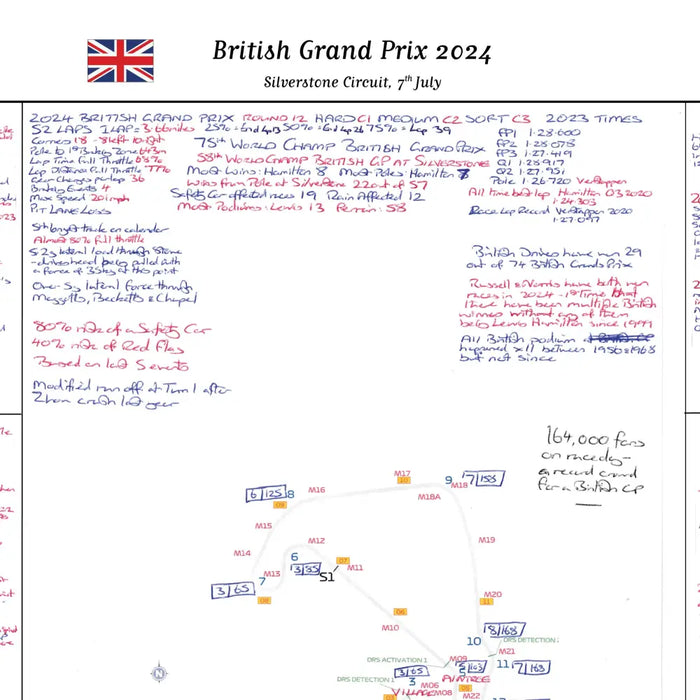 British Grand Prix 2024
Silverstone Circuit, 7th July
2024 BRITISH GRAND PRIX ROUND 12 HARD C1 MEDIUM C2 SOFT C3 2023 TIMES
52 LAPS 1 LAP = 3.6 25% = End Lap 13 50% = End Lap 26 75% = Lap 39
Corners 18 - 8 left 10 right
Pole to 1st Braking Zone
Lap Time Full Throttle
Lap Distance Full Throttle 77%
Gear Changes per lap 36
Braking Events 4
Max Speed
Pit Lane Loss
75th WORLD CHAMP BRITISH GRAND PRIX
58th WORLD CHAMP BRITISH GP AT SILVERSTONE
Most Wins: Hamilton 8 Most Poles: Hamilton 7
Wins from Pole at Silverstone 22 out of 57
Safety Car affected races 19 Rain Affected 12
Most Podiums: Lewis 13 Ferrari: 58
FP1 1·28·600
FP2 1·28·078
FP3 1·27·419
Q1 1·28·917
Q2 1·27·951
Pole 1·26·720 Verstappen
All time best lap Hamilton Q3 2020
1·24·303
Race Lap Record Verstappen 2020
1·27·097
5th longest track on calendar
Almost 80% full throttle
5.2g lateral load through Stowe
- drivers head being pulled with
a force of 35kg at this point
One - 5g lateral force through
Maggotts, Becketts & Chapel
80% risk of a Safety Car
40% risk of Red Flag
Based on last 5 events
Modified run off at Turn 1 after
Zhou crash last year
British Drivers have won 29
out of 74 British Grands Prix
Russell & Norris have both won
races in 2024 - 1st Time that
there have been multiple British
winners without any of them
being Lewis Hamilton since 1999
All British podium at
happened x11 between 1958 & 1968
but not since
164,000 fans
on raceday -
a record crowd
for a British GP
M17
10
9 7/155
M18
6/125 8
M16
M18A
09
M15
M12
M19
M14
6
07
3/85
M11
S1
M13
7
3/65
08
M20
11
06
M10
8/168
10
DRS DETECTION
M21
DRS ACTIVATION 1
M09
11 7/163
3/65
DRS DETECTION 1
3
M06
VILLAGE
M08
M22